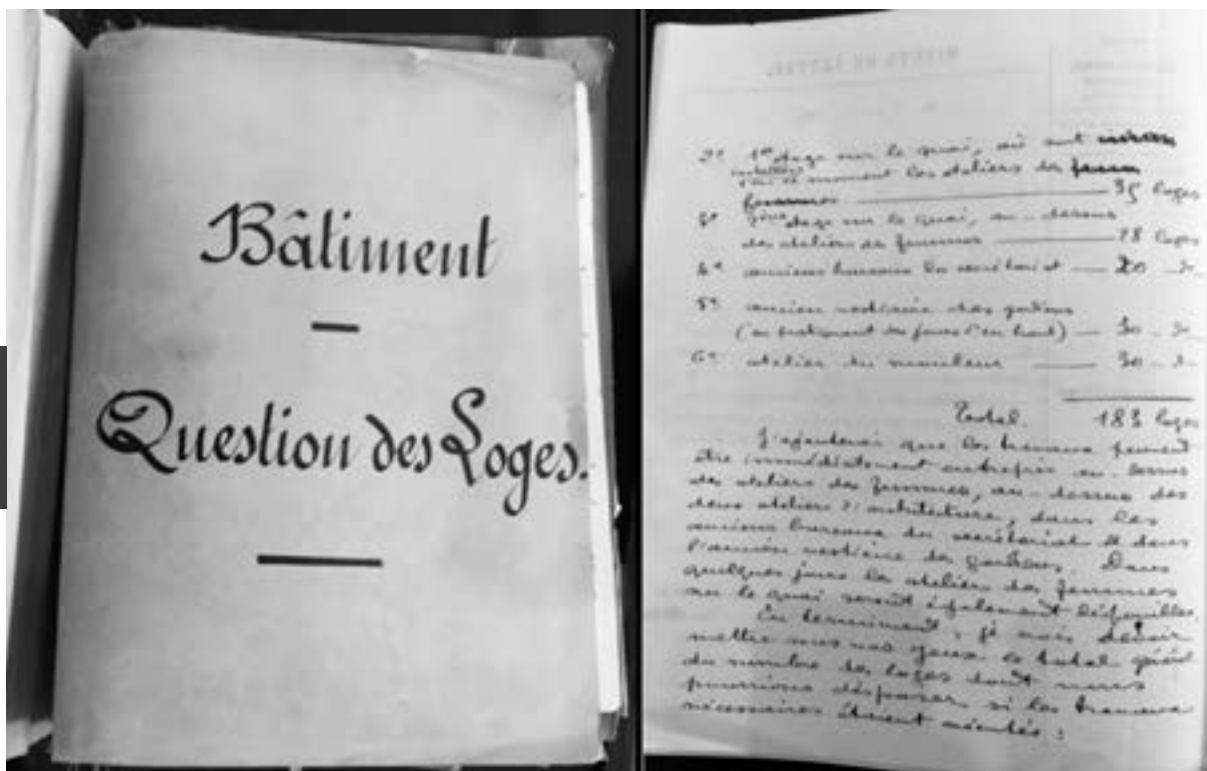 Bâtiment
Question des Loges.
2° 1er étage sur le quai, où sont
installés en ce moment les ateliers de
femmes 35 loges
3° 2ème étage sur le quai, au-dessus
des ateliers de femmes 28 loges
4° anciens bureaux du secrétariat 20 -d-
5° ancien vestiaire des gardiens
(au bâtiment des fours d'en haut) 30 -d-
6° atelier du mouleur 30 -d-
Total. 183 loges
J'ajouterai que les travaux peuvent
être immédiatement entrepris au-dessus
des ateliers de femmes, au-dessus des
deux ateliers d'architecture, dans les
anciens bureaux du secrétariat & dans
l'ancien vestiaire des gardiens. Dans
quelques jours les ateliers des femmes
sur le quai seront également disponibles.
En terminant, je crois devoir
mettre sous vos yeux le total général
du nombre de loges dont nous
pourrions disposer si les travaux
nécessaires étaient exécutés :